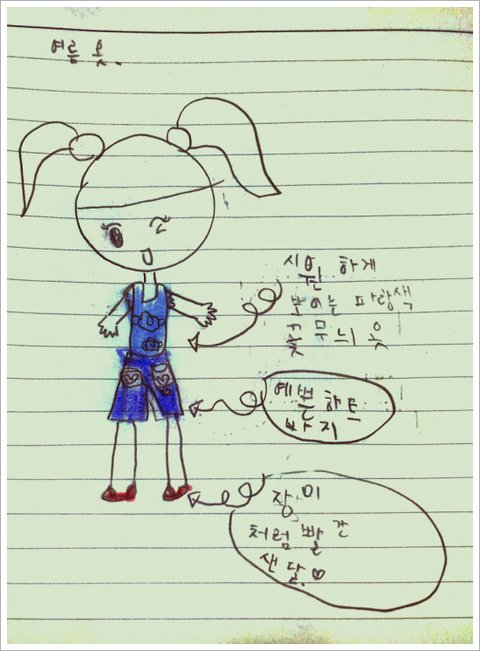 여름 옷.
시원 하게
보이는 파랑색
꽃무늬 옷
예쁜 하트
바지
장미
처럼 빨간
샌달.♡